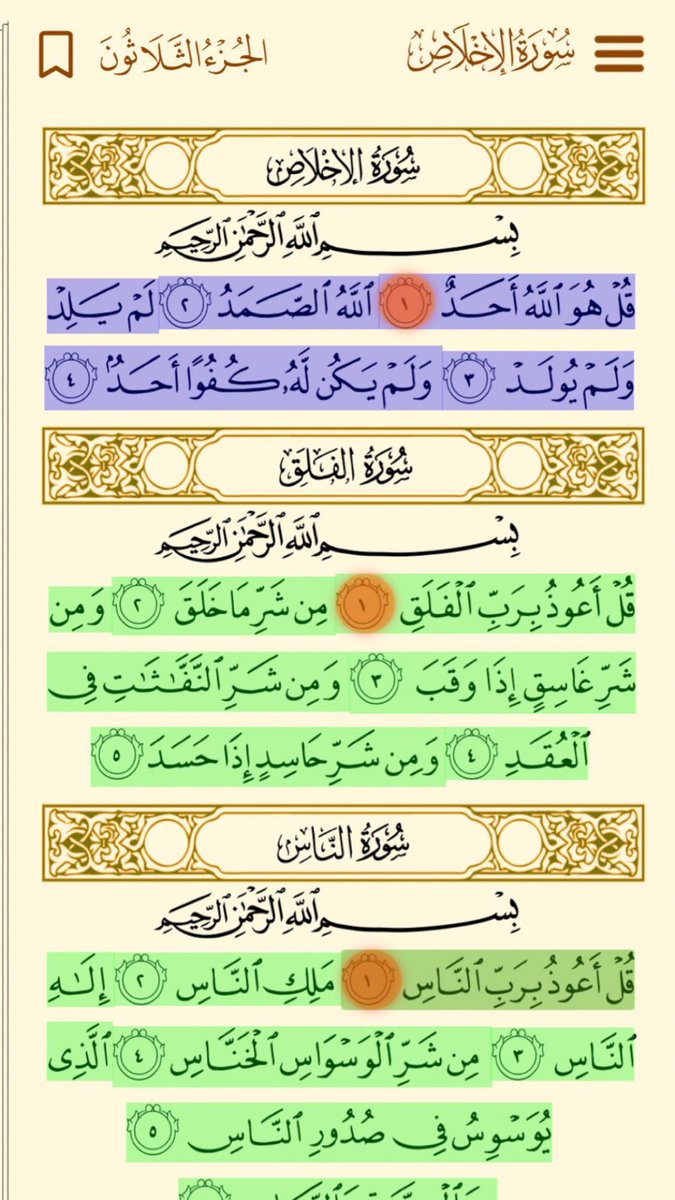 سُورَةُ الإِخْلَاصِ
الجُزْءُ الثَّلَاثُونَ
سُورَةُ الإِخْلَاصِ
بِسْمِ ٱللَّهِ ٱلرَّحْمَٰنِ ٱلرَّحِيمِ
قُلْ هُوَ ٱللَّهُ أَحَدٌ ١ ٱللَّهُ ٱلصَّمَدُ ٢ لَمْ يَلِدْ
وَلَمْ يُولَدْ ٣ وَلَمْ يَكُن لَّهُۥ كُفُوًا أَحَدٌۢ ٤
سُورَةُ الفَلَقِ
بِسْمِ ٱللَّهِ ٱلرَّحْمَٰنِ ٱلرَّحِيمِ
قُلْ أَعُوذُ بِرَبِّ ٱلْفَلَقِ ١ مِن شَرِّ مَا خَلَقَ ٢ وَمِن
شَرِّ غَاسِقٍ إِذَا وَقَبَ ٣ وَمِن شَرِّ ٱلنَّفَّٰثَٰتِ فِى
ٱلْعُقَدِ ٤ وَمِن شَرِّ حَاسِدٍ إِذَا حَسَدَ ٥
سُورَةُ النَّاسِ
بِسْمِ ٱللَّهِ ٱلرَّحْمَٰنِ ٱلرَّحِيمِ
قُلْ أَعُوذُ بِرَبِّ ٱلنَّاسِ ١ مَلِكِ ٱلنَّاسِ ٢ إِلَٰهِ
ٱلنَّاسِ ٣ مِن شَرِّ ٱلْوَسْوَاسِ ٱلْخَنَّاسِ ٤ ٱلَّذِى
يُوَسْوِسُ فِى صُدُورِ ٱلنَّاسِ ٥